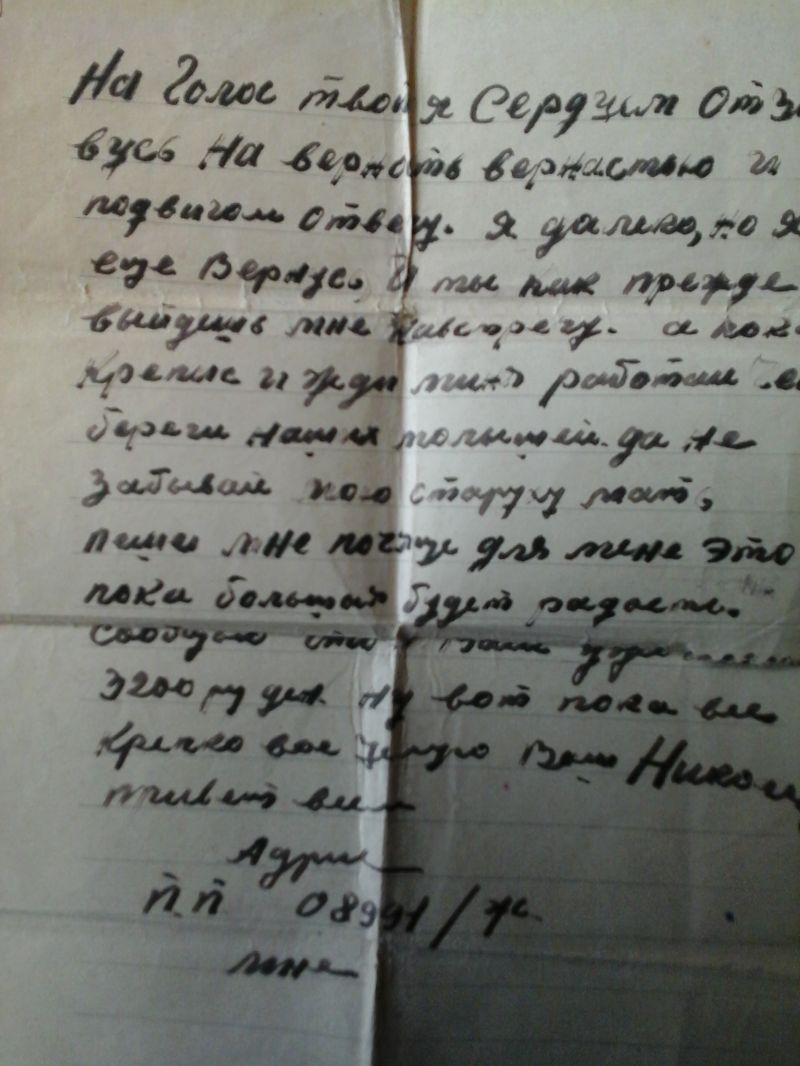 На Голос твой я Сердцем Отзо
вусь На верность вернастью и
подвигом Отвечу. Я далеко, но я
еще Вернус, И ты как прежде
выйдешь мне навстречу. а пока
Крепис и жди минь работай
береги наших молышей. да не
Забывай мою старуху мать,
пиши мне почаще для мене это
пока большая будет радость.
Сообщаю что я вам
3200 ру ден. ну вот пока все
Крепко вас целую Ваш Николай
привет всем
Адрис
П.П 08991/ж
мне